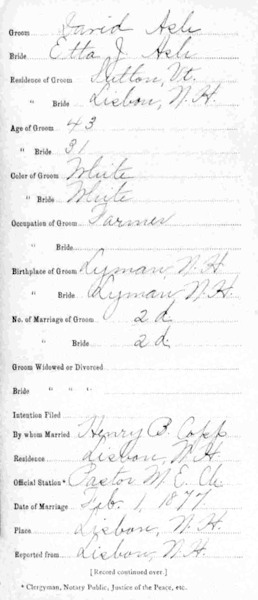 Groom David Ash
Bride Etta J. Ash
Residence of Groom Sutton, Vt.
" Bride Lisbon, N. H.
Age of Groom 43
" Bride 31
Color of Groom White
" Bride White
Occupation of Groom Farmer
" Bride
Birthplace of Groom Lyman N. H.
" Bride Lyman N. H.
No. of Marriage of Groom 2d
" Bride 2d.
Groom Widowed or Divorced
Bride " " "
Intention Filed
By whom Married Henry B. Copp
Residence Lisbon, N. H.
Official Station* Pastor M. E. Ch.
Date of Marriage Feb. 1, 1877.
Place Lisbon, N. H.
Reported from Lisbon, N. H.
[Record continued over.]
* Clergyman, Notary Public, Justice of the Peace, etc.